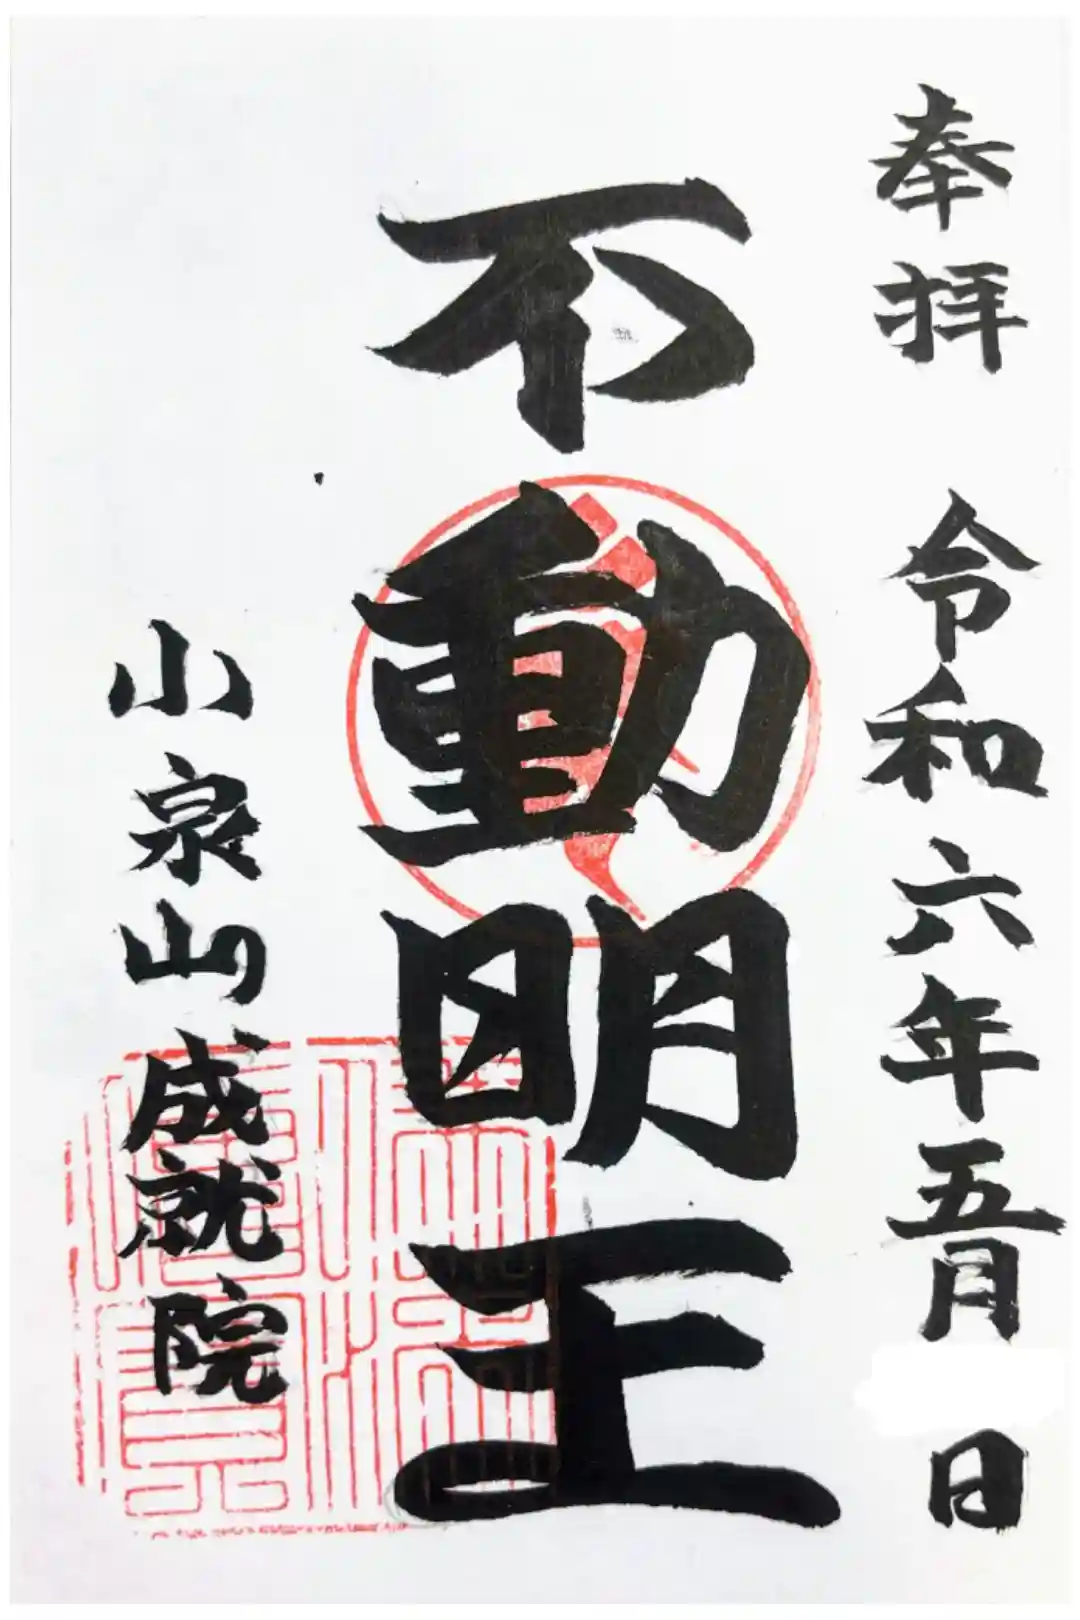 奉拝 令和六年五月 日
不動明王
小泉山成就院